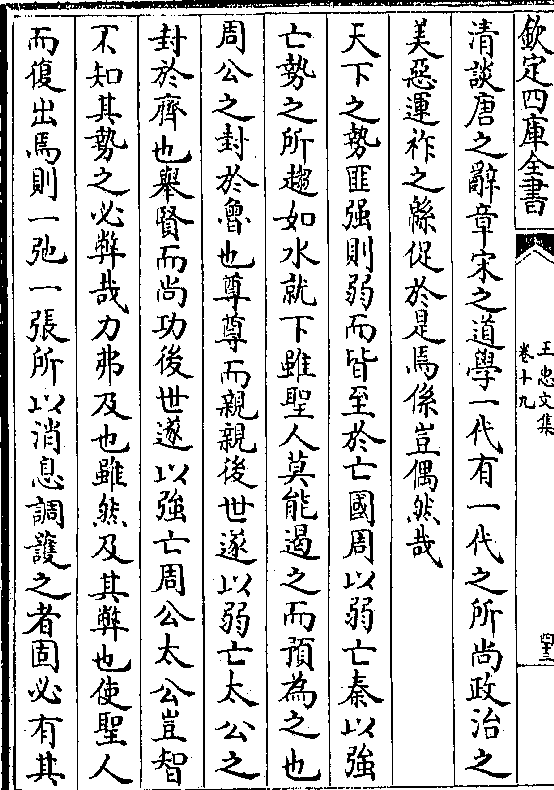 欽定四庫全書
王忠文集
卷十九
四十三
清談唐之辭章宋之道學一代有一代之所尚政治之
美惡運祚之緜促於是焉係豈偶然哉
天下之勢匪强則弱而皆至於亡國周以弱亡秦以強
亡勢之所趨如水就下雖聖人莫能遏之而預為之也
周公之封於魯也尊尊而親親後世遂以弱亡太公之
封於齊也舉賢而尚功後世遂以強亡周公太公豈智
不知其勢之必弊哉力弗及也雖然及其弊也使聖人
而復出焉則一弛一張所以消息調護之者固必有其